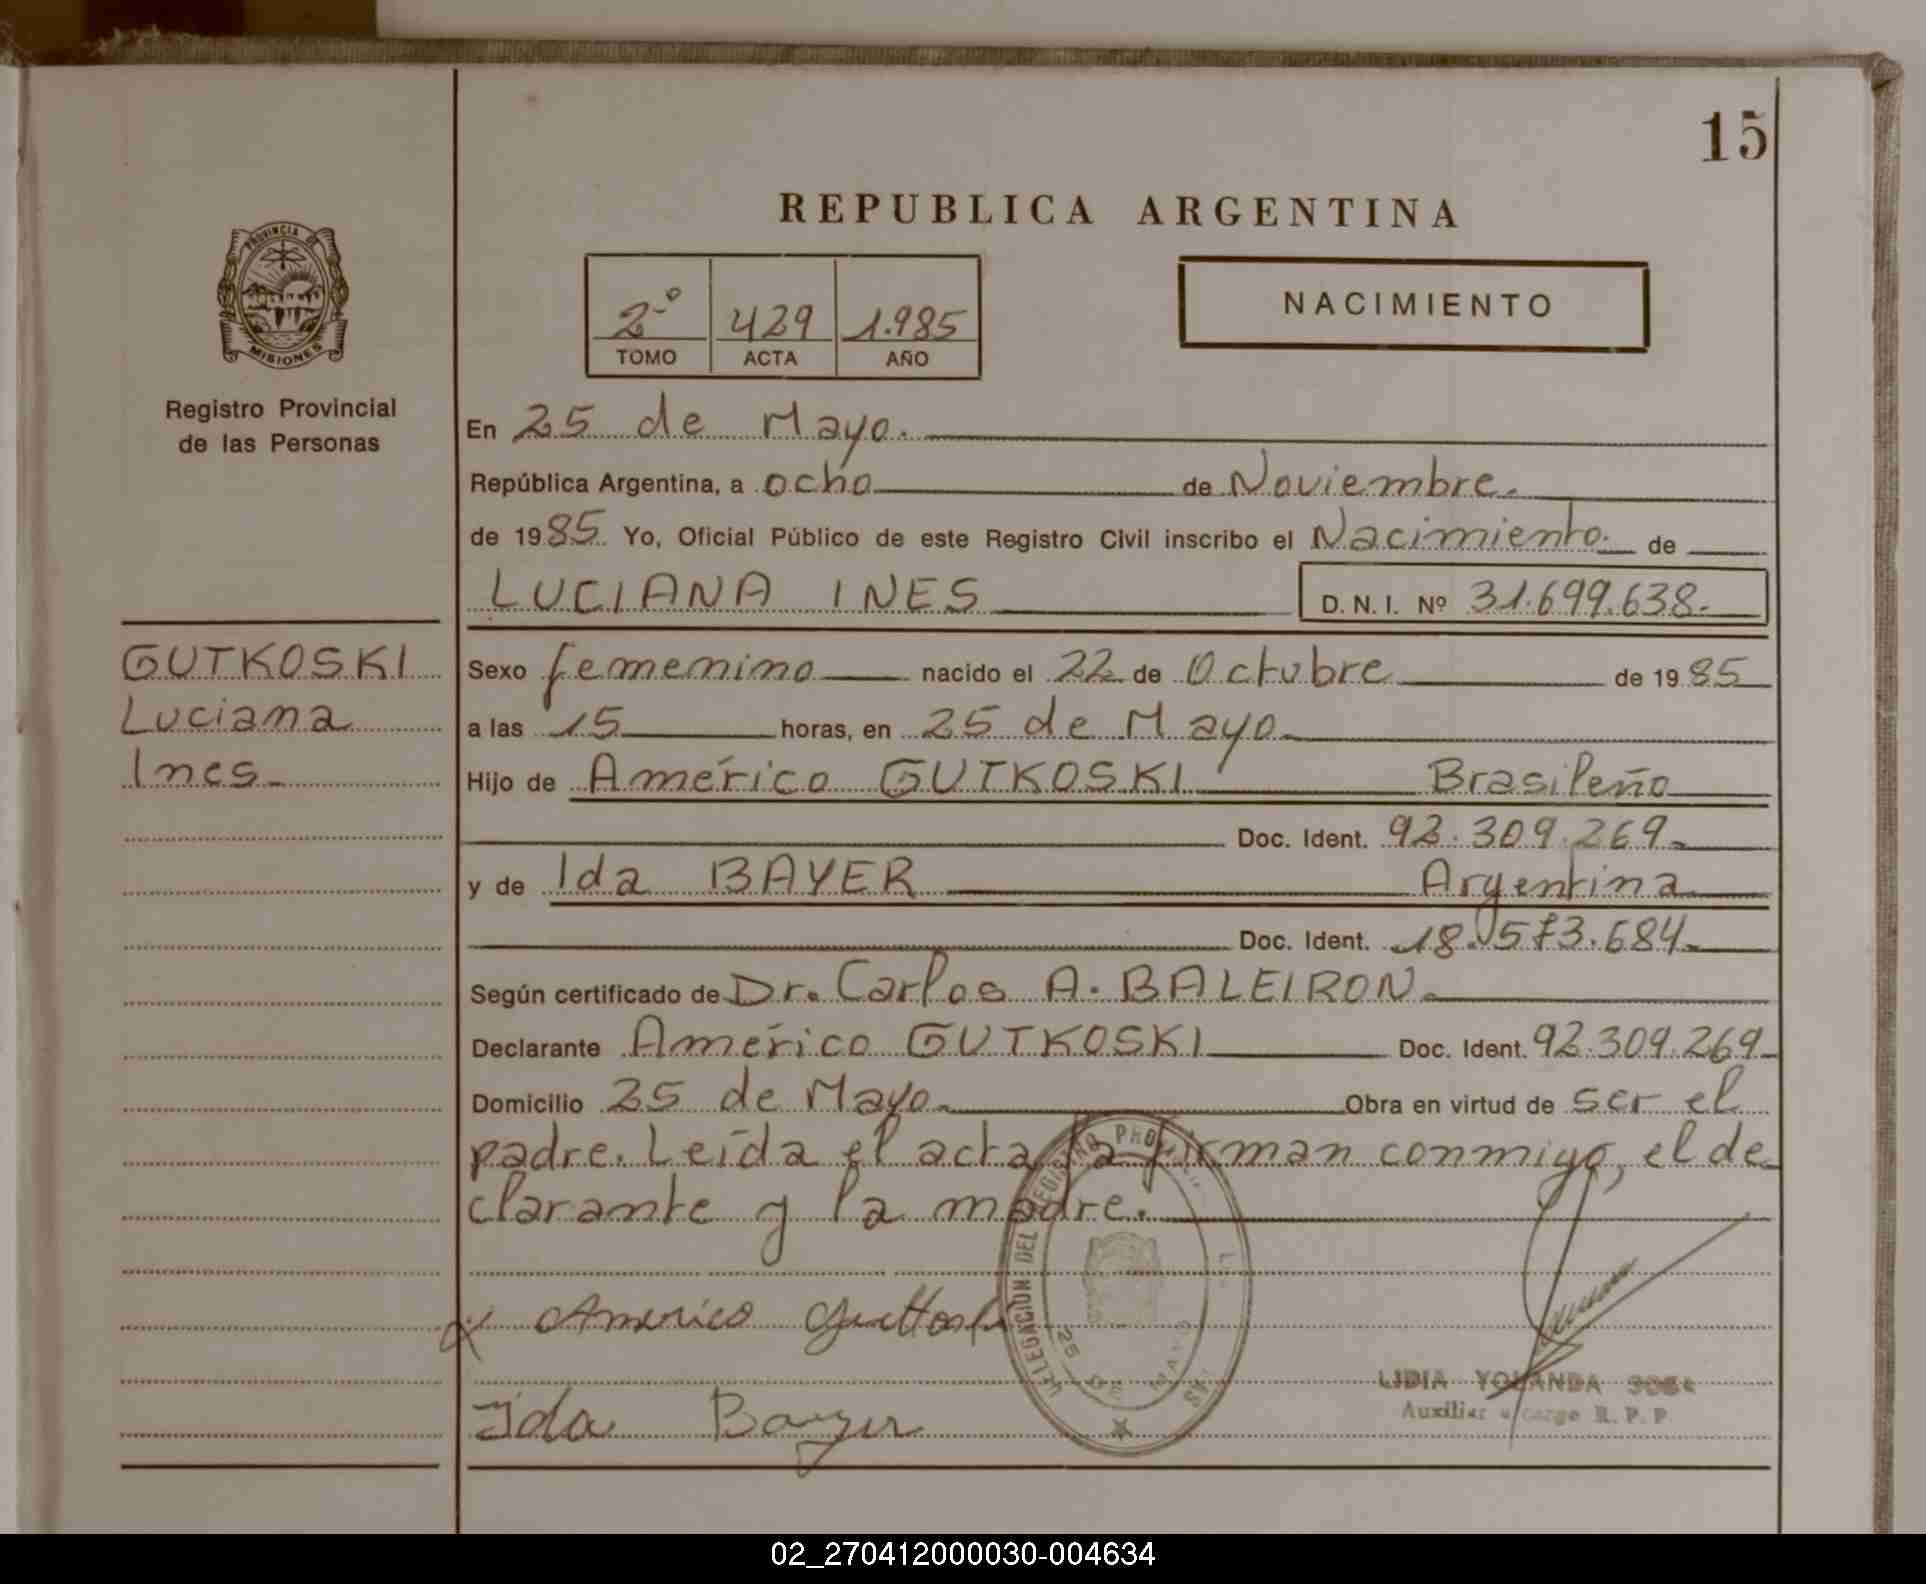 15
REPUBLICA ARGENTINA
PROVINCIA DE
MISIONES
Registro Provincial
de las Personas
2º 429 1.985
TOMO ACTA AÑO
NACIMIENTO
En 25 de Mayo.
República Argentina, a ocho de Noviembre.
de 1985. Yo, Oficial Público de este Registro Civil inscribo el Nacimiento. de
LUCIANA INES D.N.I. Nº 31.699.638.
GUTKOSKI
Luciana
Ines
Sexo femenino nacido el 22 de Octubre de 1985
a las 15 horas, en 25 de Mayo
Hijo de Américo GUTKOSKI Brasileño
Doc. Ident. 92.309.269
y de Ida BAYER Argentina
Doc. Ident. 18.573.684
Según certificado de Dr. Carlos A. BALEIRON.
Declarante Américo GUTKOSKI Doc. Ident. 92.309.269
Domicilio 25 de Mayo. Obra en virtud de ser el
padre. Leída el acta la firman conmigo, el de
clarante y la madre.
DELEGACION DEL REGISTRO
25 DE MAYO
x Americo
Ida Bayer
LIDIA YOLANDA
Auxiliar a cargo R.P.P.
02_270412000030-004634